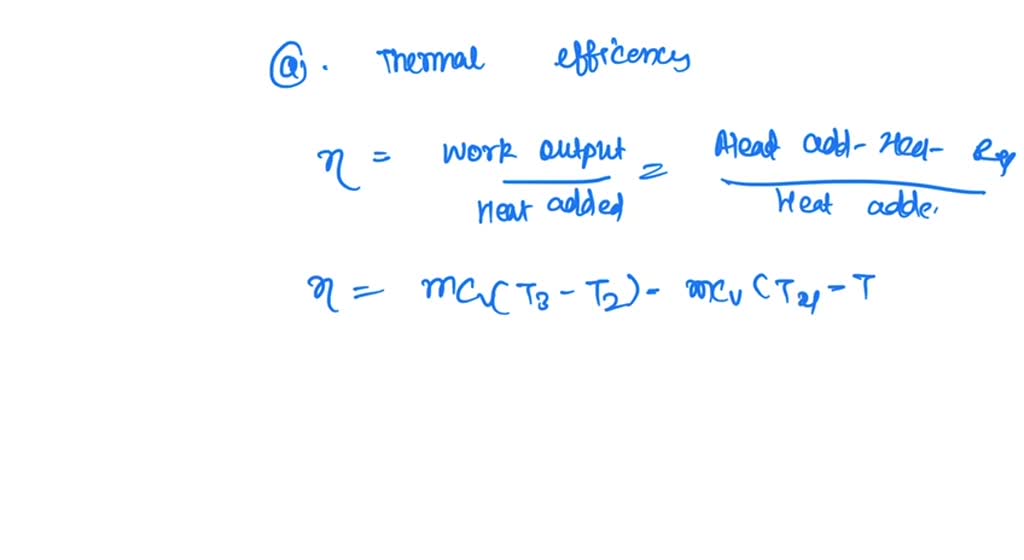 (a). Thermal efficency
η = Work output / Heat added = Head add- Heat- Rej / Heat adde.
η = mCv(T3 - T2) - mCv(T4 - T